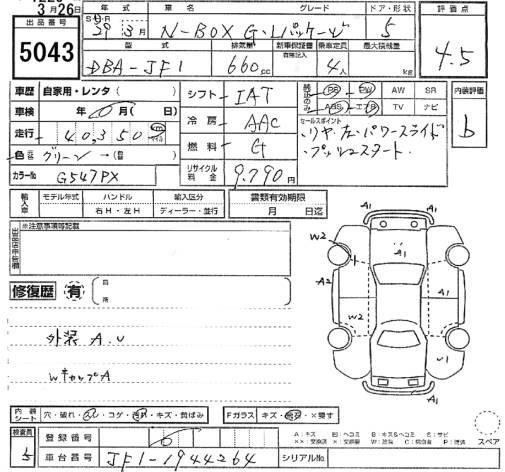 3月26日
年式 車名 グレード ドア・形状 評価点
出品番号
5043
3月 N-BOX G・Lパッケージ 5 4.5
型式 排気量 新車保証書 乗車定員 最大積載量
DBA-JF1 660cc 4人 kg
車歴 自家用・レンタ( ) シフト IAT PS PW AW SR 内装評価
車検 年0月( 日) 冷房 AAC ABS エアB TV ナビ b
走行 40,350 燃料 G セールスポイント
色 グリーン リヤ左パワースライド
プッシュスタート
カラーNo G547PX リサイクル料金 9.790円
輸入車 モデル年式 ハンドル 輸入区分 書類有効期限
右H・左H ディーラー・並行 月 日迄
※注意事項等記載
修復歴 有 箇所
外装 A.U
WキャップA
A1 A1 A1 W2 A2 A1 W2 U1 A1
内装シート 穴・破れ・コゲ・汚れ・キズ・黄ばみ Fガラス キズ・×要す
検査員 登録番号
車台番号 JF1-1944264 シリアルNo.
スペア